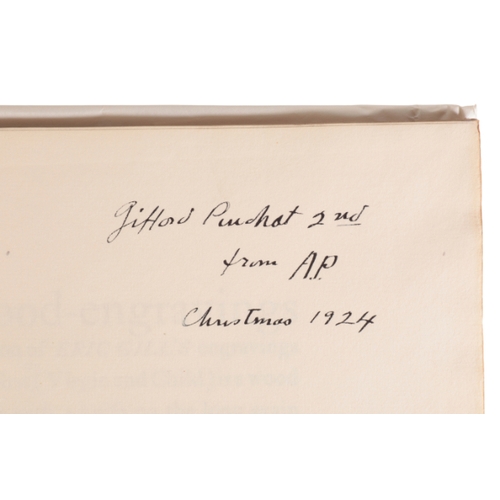 Gifford Pinchot 2nd
from A.P.
Christmas 1924